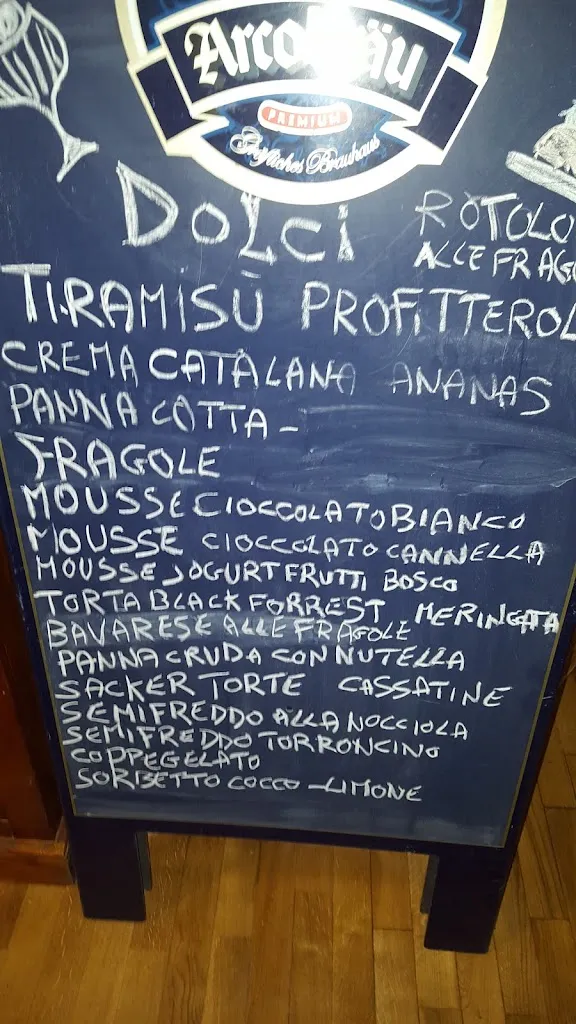 Arcobräu
PREMIUM
Gräfliches Brauhaus
DOLCI
ROTOLO
ALLE FRAGO
TIRAMISÙ PROFITTEROL
CREMA CATALANA ANANAS
PANNA COTTA -
FRAGOLE
MOUSSE CIOCCOLATO BIANCO
MOUSSE CIOCCOLATO CANNELLA
MOUSSE JOGURT FRUTTI BOSCO
TORTA BLACK FORREST MERINGATA
BAVARESE ALLE FRAGOLE
PANNA CRUDA CON NUTELLA
SACKER TORTE CASSATINE
SEMIFREDDO ALLA NOCCIOLA
SEMIFREDDO TORRONCINO
COPPE GELATO
SORBETTO COCCO - LIMONE